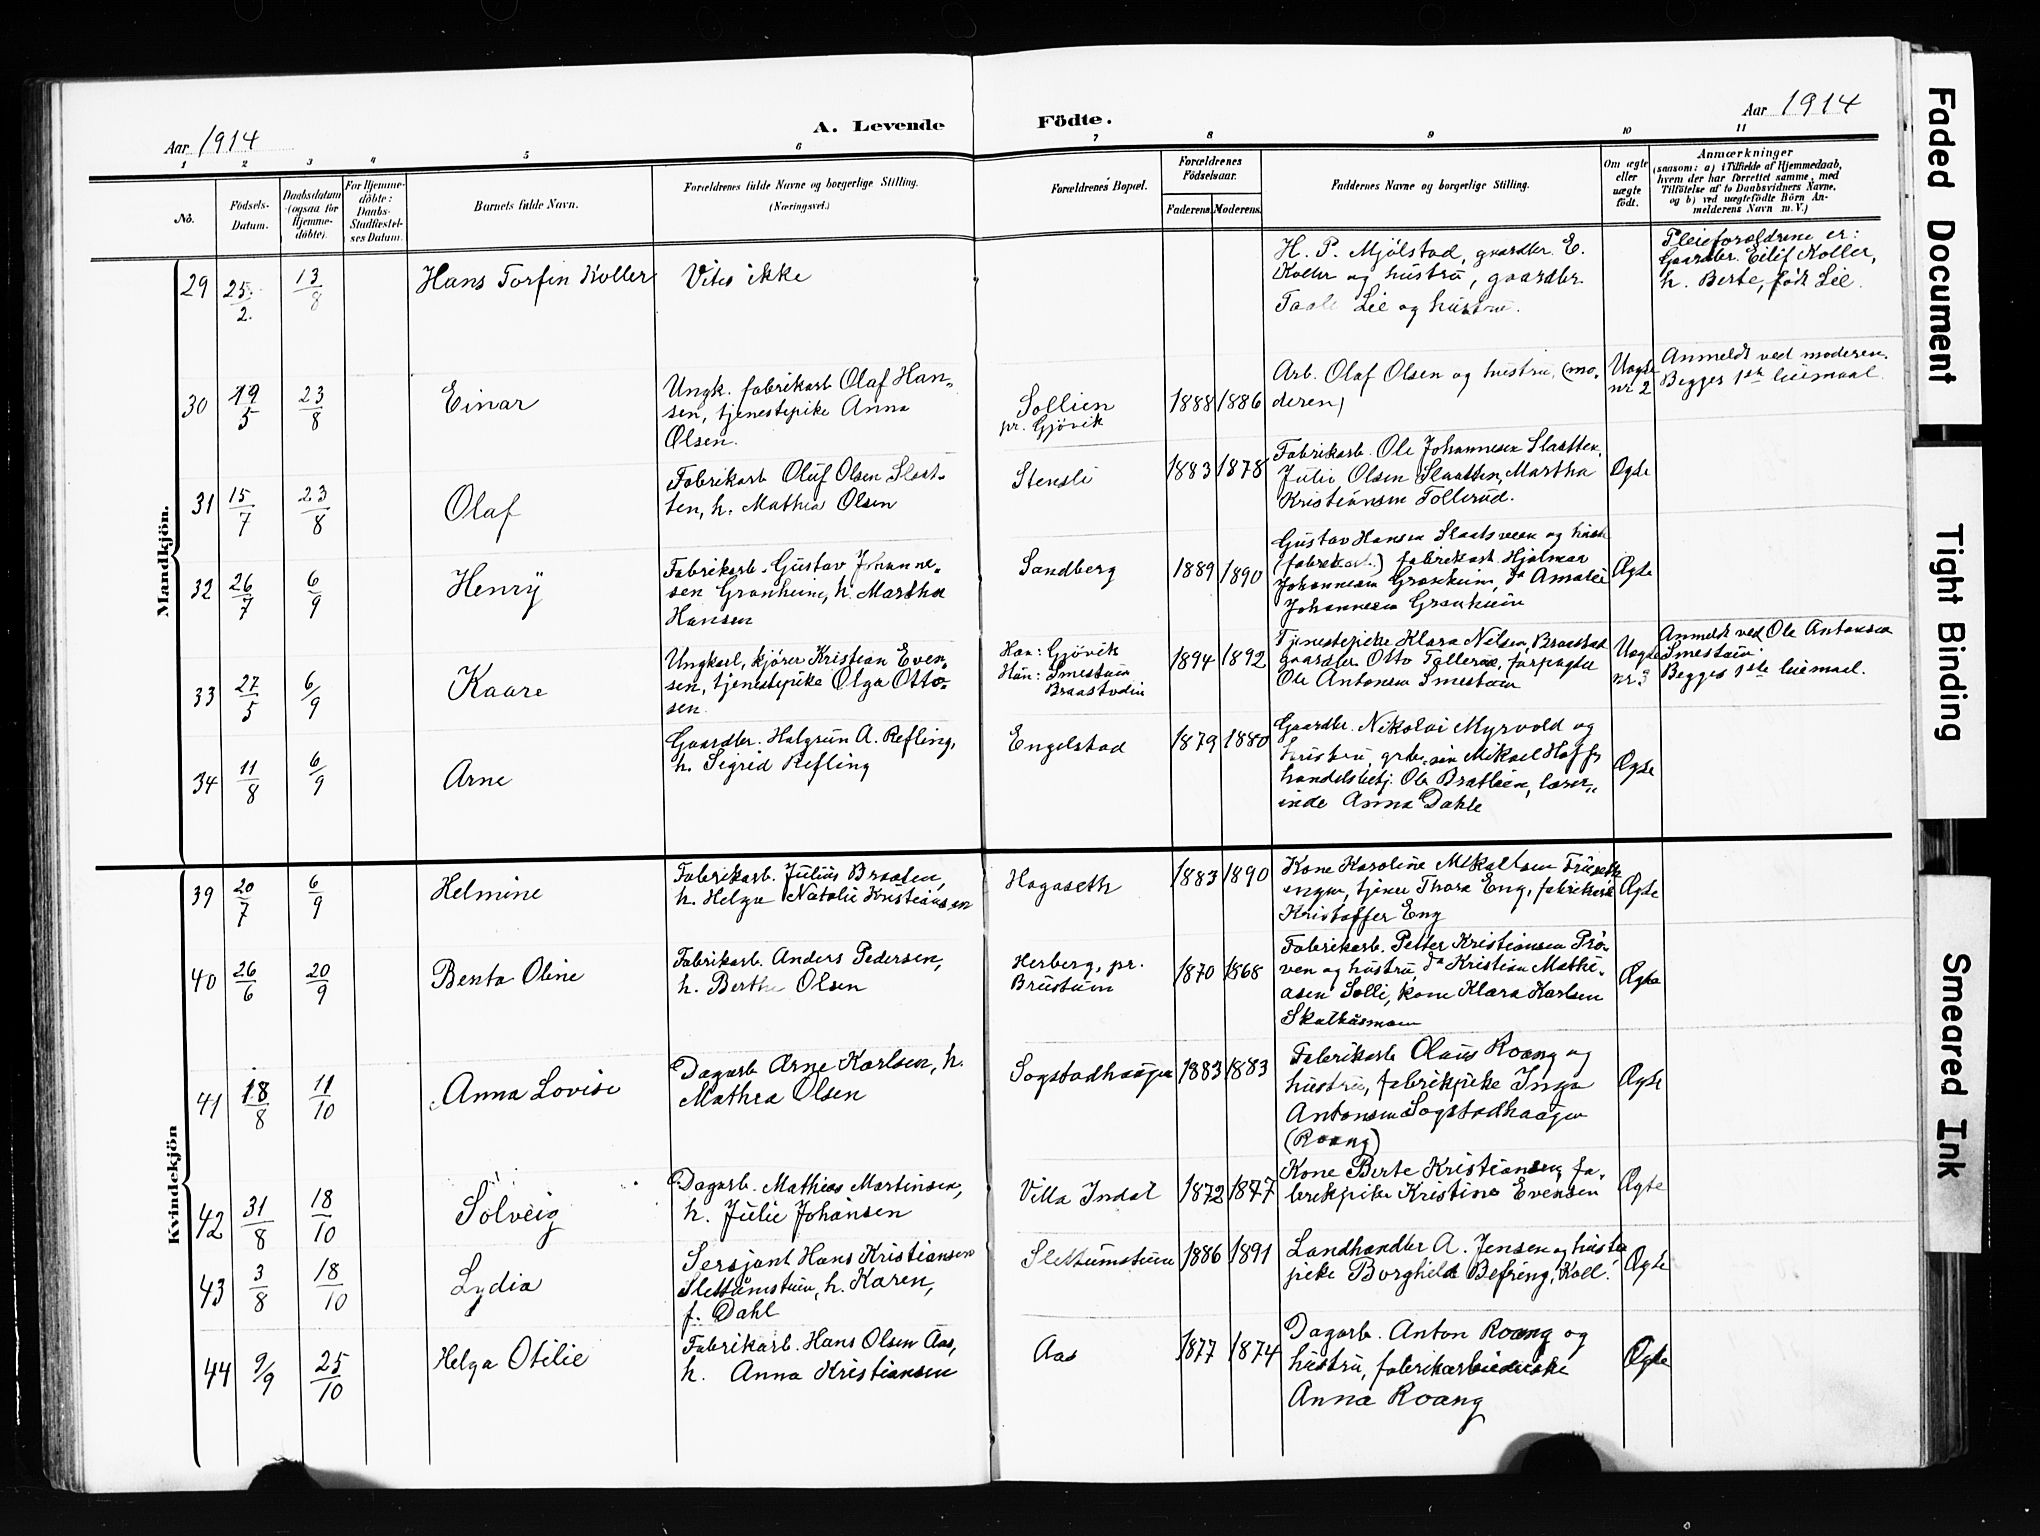 Aar 1914
A. Levende Födte.
Aar 1914
1 2 3 4 5 6 7 8 9 10 11
No.
Födsels-
Datum.
Daabsdatum
(ogsaa for
Hjemme-
döbte).
For Hjemme-
döbte:
Daabs-
Stadfæstel-
ses Datum.
Barnets fulde Navn.
Forældrenes fulde Navne og borgerlige Stilling.
(Næringsvei.)
Forældrenes Bopæl.
Forældrenes
Födselsaar.
Faderens. Moderens.
Faddernes Navne og borgerlige Stilling.
Om ægte
eller
uægte
födt.
Anmærkninger
(saasom: a) i Tilfælde af Hjemmedaab,
hvem der har forrettet samme, med
Tilföielse af to Daabsvidners Navne,
og b) ved uægtefödte Börn An-
melderens Navn m. V.)
Mandkjön.
29 25/2. 13/8 Hans Torfin Koller Vites ikke
H. P. Mjölstad, gaardbr. E.
Koller og hustru, gaardbr.
Taale Lie og hustru.
Pleieforældrene er:
Gaardbr. Eilif Koller,
h. Berte, født Lie.
30 19/5 23/8 Einar
Ungk. fabrikarb Olaf Han-
sen, tjenestepike Anna
Olsen.
Sollien
pr. Gjövik
1888 1886
Arb. Olaf Olsen og hustru, (mo-
deren)
Uægte
nr 2
Anmeldt ved moderen.
Begges 1ste leiemaal.
31 15/7 23/8 Olaf
Fabrikarb Oluf Olsen Slaat-
ten, h. Mathea Olsen
Stensli
1883 1878
Fabrikarb. Ole Johannesen Slaatten,
Julie Olsen Slaatten, Martha
Kristiansen Tollerud.
Ægte
32 26/7 6/9 Henry
Fabrikarb. Gustav Johanne-
sen Granheim, h. Martha
Hansen
Sandberg
1889 1890
Gustav Hansen Slaatsveen og hustr
(fabrikarb.) fabrikarb Hjalmar
Johannesen Granheim, Amalie
Johannesen Granheim
Ægte
33 27/5 6/9 Kaare
Ungkarl, kjörer Kristian Even-
sen, tjenestepike Olga Otto-
sen.
Han: Gjövik
Hun: Smestuen
Braastadlien
1894 1892
Tjenestepike Klara Nilsen, Braastad
gaardbr. Otto Tollerud, forpagter
Ole Antonsen Smestuen
Uægte
nr 3
Anmeldt ved Ole Antonsen
Smestuen
Begges 1ste leiemaal.
34 11/8 6/9 Arne
Gaardbr. Halgrim A. Refling,
h. Sigrid Refling
Engelstad
1879 1880
Gaardbr. Nikolai Myrvold og
hustru, grbr. sön Mikael Hoff,
handelsbetj. Ole Bratlien, lærer-
inde Anna Dahle
Ægte
Kvindekjön
39 20/7 6/9 Helmine
Fabrikarb. Julius Braaten,
h. Helga Natalie Kristiansen
Hagaseth
1883 1890
Kone Karoline Mikaelsen
engen, tjener Thora Eng, fabrikarb
Kristoffer Eng
Ægte
40 26/6 20/9 Benta Oline
Fabrikarb. Anders Pedersen,
h. Berthe Olsen
Herberg, pr.
Brustuen
1870 1868
Fabrikarb. Petter Kristiansen Prö-
ven og hustru, Kristian Mathi-
asen Solli, kone Klara Karlsen
Skalhusmoen
Ægte
41 18/8 11/10 Anna Lovise
Dagarb Arne Karlsen, h.
Mathea Olsen
Sogstadhaagen
1883 1883
Fabrikarb Olaus Roang og
hustru, fabrikpike Inga
Antonsen Sogstadhaagen
(Roang)
Ægte
42 31/8 18/10 Sölveig
Dagarb. Mathias Martinsen,
h. Julie Johansen
Villa Indal
1872 1877
Kone Berte Kristiansen, fa-
brikpike Kristine Evensen
Ægte
43 3/8 18/10 Lydia
Sersjant Hans Kristiansen
Slettumstuen, h. Karen,
f. Dahl
Slettumstuen
1886 1891
Landhandler A. Jensen og hustru
pike Borghild Befring, Koll.
Ægte
44 9/9 25/10 Helga Otilie
Fabrikarb. Hans Olsen Aas,
h. Anna Kristiansen
Aas
1877 1874
Dagarb. Anton Roang og
hustru, fabrikarbeiderske
Anna Roang
Ægte
Faded Document
Tight Binding
Smeared Ink